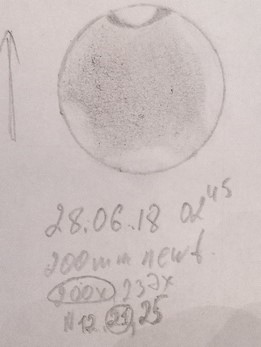 28.06.18 02⁴⁵
200mm newt.
200x 137x
N12, 21, 25